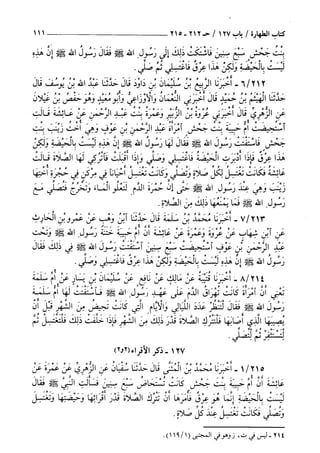 كتاب الطهارة / باب ١٢٧ / حـ ٢١٢ - ٢١٥ ١١١
بِنْتُ جَحْشٍ سَبْعَ سِنِينَ فَاشْتَكَتْ ذَلِكَ إِلَى رَسُولِ اللهِ ﷺ فَقَالَ رَسُولُ اللهِ ﷺ إِنَّ هَذِهِ
لَيْسَتْ بِالْحَيْضَةِ وَلَكِنْ هَذَا عِرْقٌ فَاغْتَسِلِي ثُمَّ صَلِّي.
٦/٢١٢ - أَخْبَرَنَا الرَّبِيعُ بْنُ سُلَيْمَانَ بْنِ دَاوُدَ قَالَ حَدَّثَنَا عَبْدُ اللهِ بْنُ يُوسُفَ قَالَ
حَدَّثَنَا الْهَيْثَمُ بْنُ حُمَيْدٍ قَالَ أَخْبَرَنِي النُّعْمَانُ وَالْأَوْزَاعِيُّ وَأَبُو مُعَيْدٍ وَهُوَ حَفْصُ بْنُ غَيْلَانَ
عَنِ الزُّهْرِيِّ قَالَ أَخْبَرَنِي عُرْوَةُ بْنُ الزُّبَيْرِ وَعَمْرَةُ بِنْتُ عَبْدِ الرَّحْمَنِ عَنْ عَائِشَةَ قَالَتِ
اسْتُحِيضَتْ أُمُّ حَبِيبَةَ بِنْتُ جَحْشٍ امْرَأَةُ عَبْدِ الرَّحْمَنِ بْنِ عَوْفٍ وَهِيَ أُخْتُ زَيْنَبَ بِنْتِ
جَحْشٍ فَاسْتَفْتَتْ رَسُولَ اللهِ ﷺ فَقَالَ لَهَا رَسُولُ اللهِ ﷺ إِنَّ هَذِهِ لَيْسَتْ بِالْحَيْضَةِ وَلَكِنْ
هَذَا عِرْقٌ فَإِذَا أَدْبَرَتِ الْحَيْضَةُ فَاغْتَسِلِي وَصَلِّي وَإِذَا أَقْبَلَتْ فَاتْرُكِي لَهَا الصَّلَاةَ قَالَتْ
عَائِشَةُ فَكَانَتْ تَغْتَسِلُ لِكُلِّ صَلَاةٍ وَتُصَلِّي وَكَانَتْ تَغْتَسِلُ أَحْيَانًا فِي مِرْكَنٍ فِي حُجْرَةِ أُخْتِهَا
زَيْنَبَ وَهِيَ عِنْدَ رَسُولِ اللهِ ﷺ حَتَّى إِنَّ حُمْرَةَ الدَّمِ لَتَعْلُو الْمَاءَ وَتَخْرُجُ فَتُصَلِّي مَعَ
رَسُولِ اللهِ ﷺ فَمَا يَمْنَعُهَا ذَلِكَ مِنَ الصَّلَاةِ.
٧/٢١٣ - أَخْبَرَنَا مُحَمَّدُ بْنُ سَلَمَةَ قَالَ حَدَّثَنَا ابْنُ وَهْبٍ عَنْ عَمْرِو بْنِ الْحَارِثِ
عَنِ ابْنِ شِهَابٍ عَنْ عُرْوَةَ وَعَمْرَةَ عَنْ عَائِشَةَ أَنَّ أُمَّ حَبِيبَةَ خَتَنَةَ رَسُولِ اللهِ ﷺ وَتَحْتَ
عَبْدِ الرَّحْمَنِ بْنِ عَوْفٍ اسْتُحِيضَتْ سَبْعَ سِنِينَ اسْتَفْتَتْ رَسُولَ اللهِ ﷺ فِي ذَلِكَ فَقَالَ
رَسُولُ اللهِ ﷺ إِنَّ هَذِهِ لَيْسَتْ بِالْحَيْضَةِ وَلَكِنْ هَذَا عِرْقٌ فَاغْتَسِلِي وَصَلِّي.
٨/٢١٤ - أَخْبَرَنَا قُتَيْبَةُ عَنْ مَالِكٍ عَنْ نَافِعٍ عَنْ سُلَيْمَانَ بْنِ يَسَارٍ عَنْ أُمِّ سَلَمَةَ
تَعْنِي أَنَّ امْرَأَةً كَانَتْ تُهَرَاقُ الدَّمَ عَلَى عَهْدِ رَسُولِ اللهِ ﷺ فَاسْتَفْتَتْ لَهَا أُمُّ سَلَمَةَ
رَسُولَ اللهِ ﷺ فَقَالَ لِتَنْظُرْ عَدَدَ اللَّيَالِي وَالْأَيَّامِ الَّتِي كَانَتْ تَحِيضُ مِنَ الشَّهْرِ قَبْلَ أَنْ
يُصِيبَهَا الَّذِي أَصَابَهَا فَلْتَتْرُكِ الصَّلَاةَ قَدْرَ ذَلِكَ مِنَ الشَّهْرِ فَإِذَا خَلَّفَتْ ذَلِكَ فَلْتَغْتَسِلْ ثُمَّ
لِتَسْتَثْفِرْ ثُمَّ لِتُصَلِّي.
١٢٧ - ذكر الأقراء (٢م٢)
١/٢١٥ - أَخْبَرَنَا مُحَمَّدُ بْنُ الْمُثَنَّى قَالَ حَدَّثَنَا سُفْيَانُ عَنِ الزُّهْرِيِّ عَنْ عَمْرَةَ عَنْ
عَائِشَةَ أَنَّ أُمَّ حَبِيبَةَ بِنْتَ جَحْشٍ كَانَتْ تُسْتَحَاضُ سَبْعَ سِنِينَ فَسَأَلَتِ النَّبِيَّ ﷺ فَقَالَ
لَيْسَتْ بِالْحَيْضَةِ إِنَّمَا هُوَ عِرْقٌ فَأَمَرَهَا أَنْ تَتْرُكَ الصَّلَاةَ قَدْرَ أَقْرَائِهَا وَحَيْضَتِهَا وَتَغْتَسِلَ
وَتُصَلِّي فَكَانَتْ تَغْتَسِلُ عِنْدَ كُلِّ صَلَاةٍ.
٢١٤ - ليس في ت، ز وهو في المجتبى (١١٩/١).